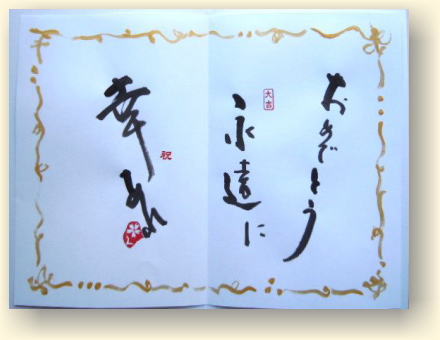 おめでとう
大吉
永遠に
祝
幸あれ